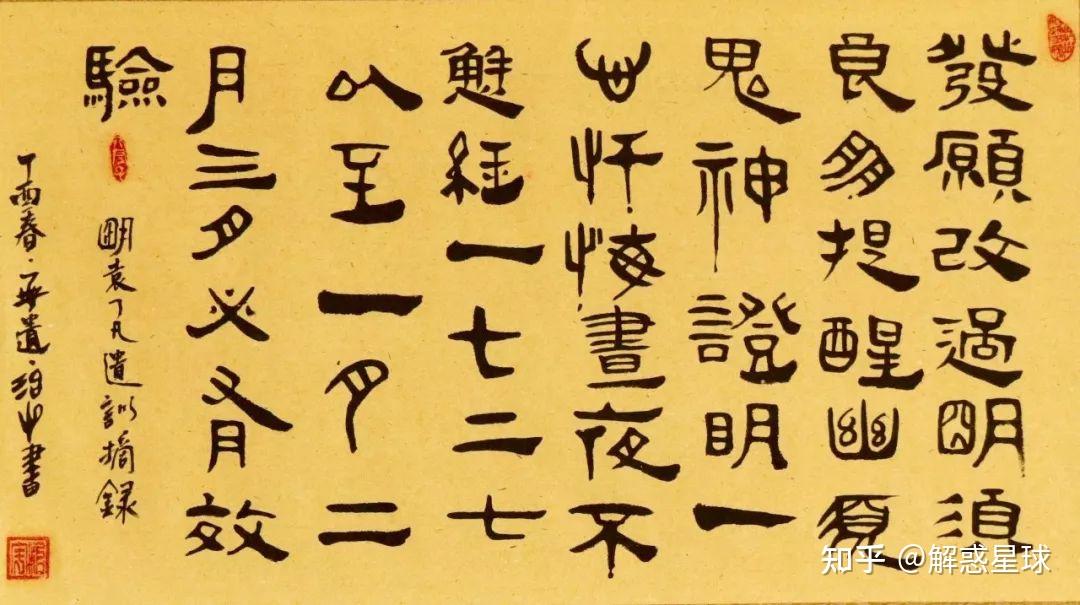 發願改過明須
良朋提醒幽須
鬼神證明一
心忏悔晝夜不
懈経一七二七
以至一月二
月三月必有效
驗
明袁了凡遺訓摘録
丁酉春 書
知乎 @解惑星球